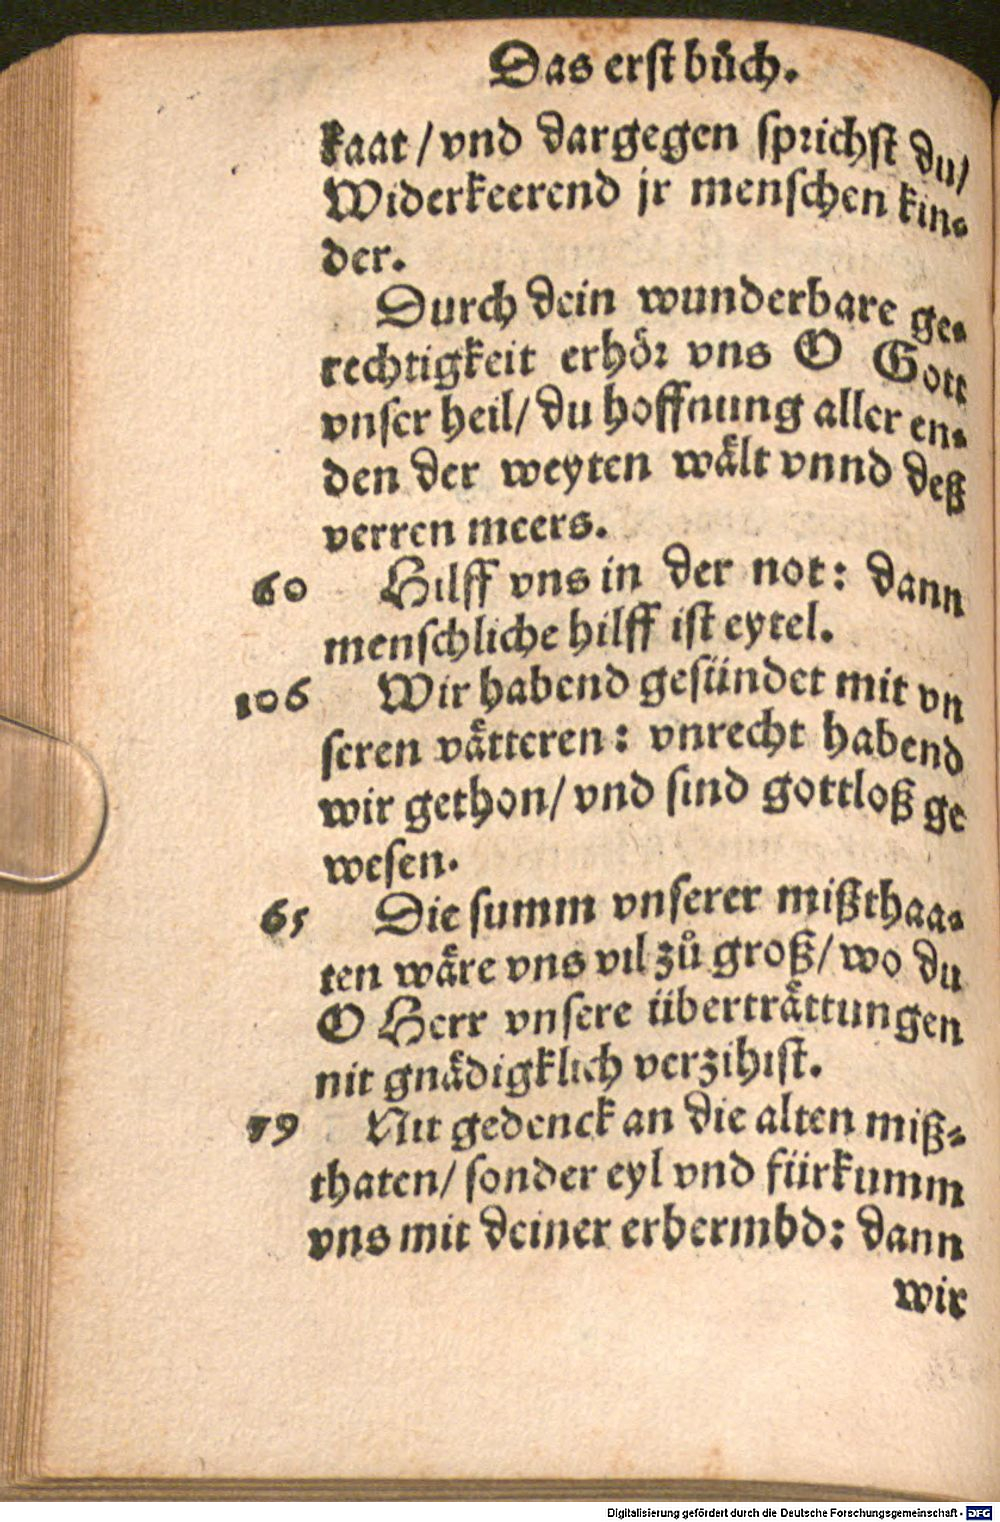 Das erst bůch.
kaat / vnd dargegen sprichst du /
Widerkeerend jr menschen kin-
der.
Durch dein wunderbare ge-
rechtigkeit erhör vns O Gott
vnser heil / du hoffnung aller en-
den der weyten wält vnnd deß
verren meers.
60 Hilff vns in der not: dann
menschliche hilff ist eytel.
106 Wir habend gesündet mit vn
seren vätteren: vnrecht habend
wir gethon / vnd sind gottloß ge
wesen.
65 Die summ vnserer mißthaa-
ten wäre vns vil zů groß / wo du
O Herr vnsere überträttungen
nit gnädigklich verzihist.
79 Nit gedenck an die alten miß-
thaten / sonder eyl vnd fürkumm
vns mit deiner erbermbd: dann
wir
Digitalisierung gefördert durch die Deutsche Forschungsgemeinschaft - DFG